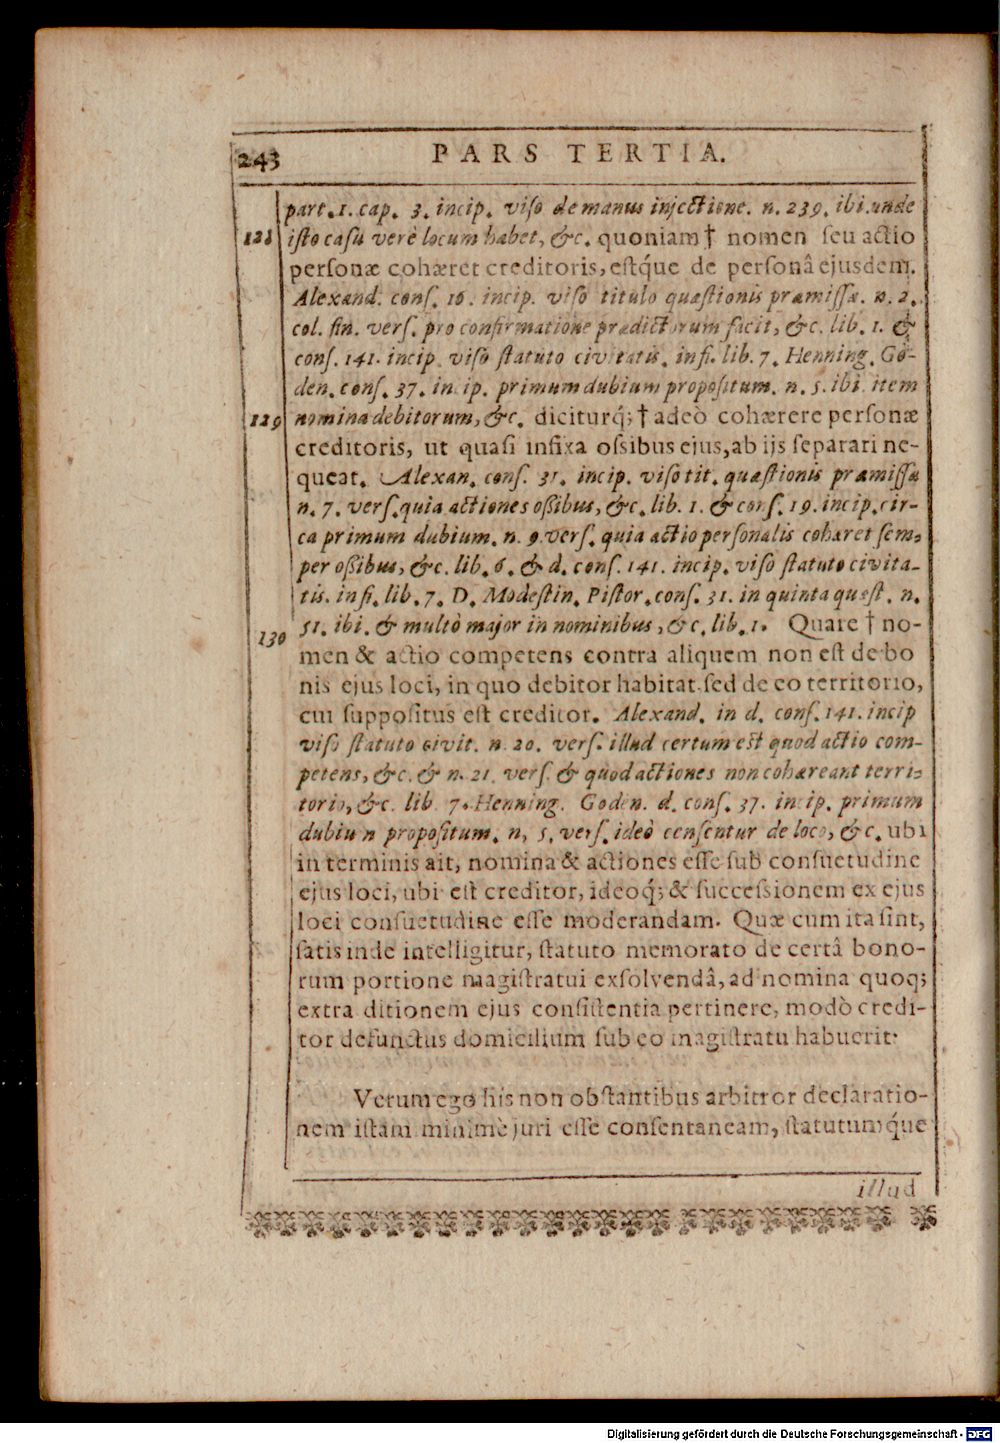 243 PARS TERTIA.
part. 1. cap. 3. incip. viso de manus injectione. n. 239. ibi. unde
128 isto casu verè locum habet, &c. quoniam † nomen seu actio
personæ cohæret creditoris, estq́ue de personâ ejusdem.
Alexand. cons. 16. incip. viso titulo quæstionis præmissæ. n. 2.
col. fin. vers. pro confirmatione prædictorum facit, &c. lib. 1. &
cons. 141. incip. viso statuto civitatis. in fi. lib. 7. Henning. Gö-
den. cons. 37. incip. primum dubium propositum. n. 5. ibi item
129 nomina debitorum, &c. diciturq́; † adeò cohærere personæ
creditoris, ut quasi infixa ossibus ejus, ab ijs separari ne-
queat. Alexan. cons. 31. incip. viso tit. quæstionis præmissæ
n. 7. vers. quia actiones ossibus, &c. lib. 1. & cons. 19. incip. cir-
ca primum dubium. n. 9. vers. quia actio personalis cohæret sem-
per ossibus, &c. lib. 6. & d. cons. 141. incip. viso statuto civita-
tis. in fi. lib. 7. D. Modestin. Pistor. cons. 31. in quinta quæst. n.
130 51. ibi. & multò major in nominibus, &c. lib. 1. Quare † no-
men & actio competens contra aliquem non est de bo
nis ejus loci, in quo debitor habitat sed de eo territorio,
cui suppositus est creditor. Alexand. in d. cons. 141. incip
viso statuto civit. n. 20. vers. illud certum est quod actio com-
petens, &c. & n. 21. vers. & quod actiones non cohæreant terri-
torio, &c. lib 7. Henning. Goden. d. cons. 37. incip. primum
dubium propositum. n, 5. vers. ideò censentur de loco, &c. ubi
in terminis ait, nomina & actiones esse sub consuetudine
ejus loci, ubi est creditor, ideoq́; & successionem ex ejus
loci consuetudine esse moderandam. Quæ cum ita sint,
satis inde intelligitur, statuto memorato de certâ bono-
rum portione magistratui exsolvendâ, ad nomina quoq;
extra ditionem ejus consistentia pertinere, modò credi-
tor defunctus domicilium sub eo magistratu habuerit.
Verum ego his non obstantibus arbitror declaratio-
nem istam minimè juri esse consentaneam, statutumq́ue
illud
Digitalisierung gefördert durch die Deutsche Forschungsgemeinschaft - DFG